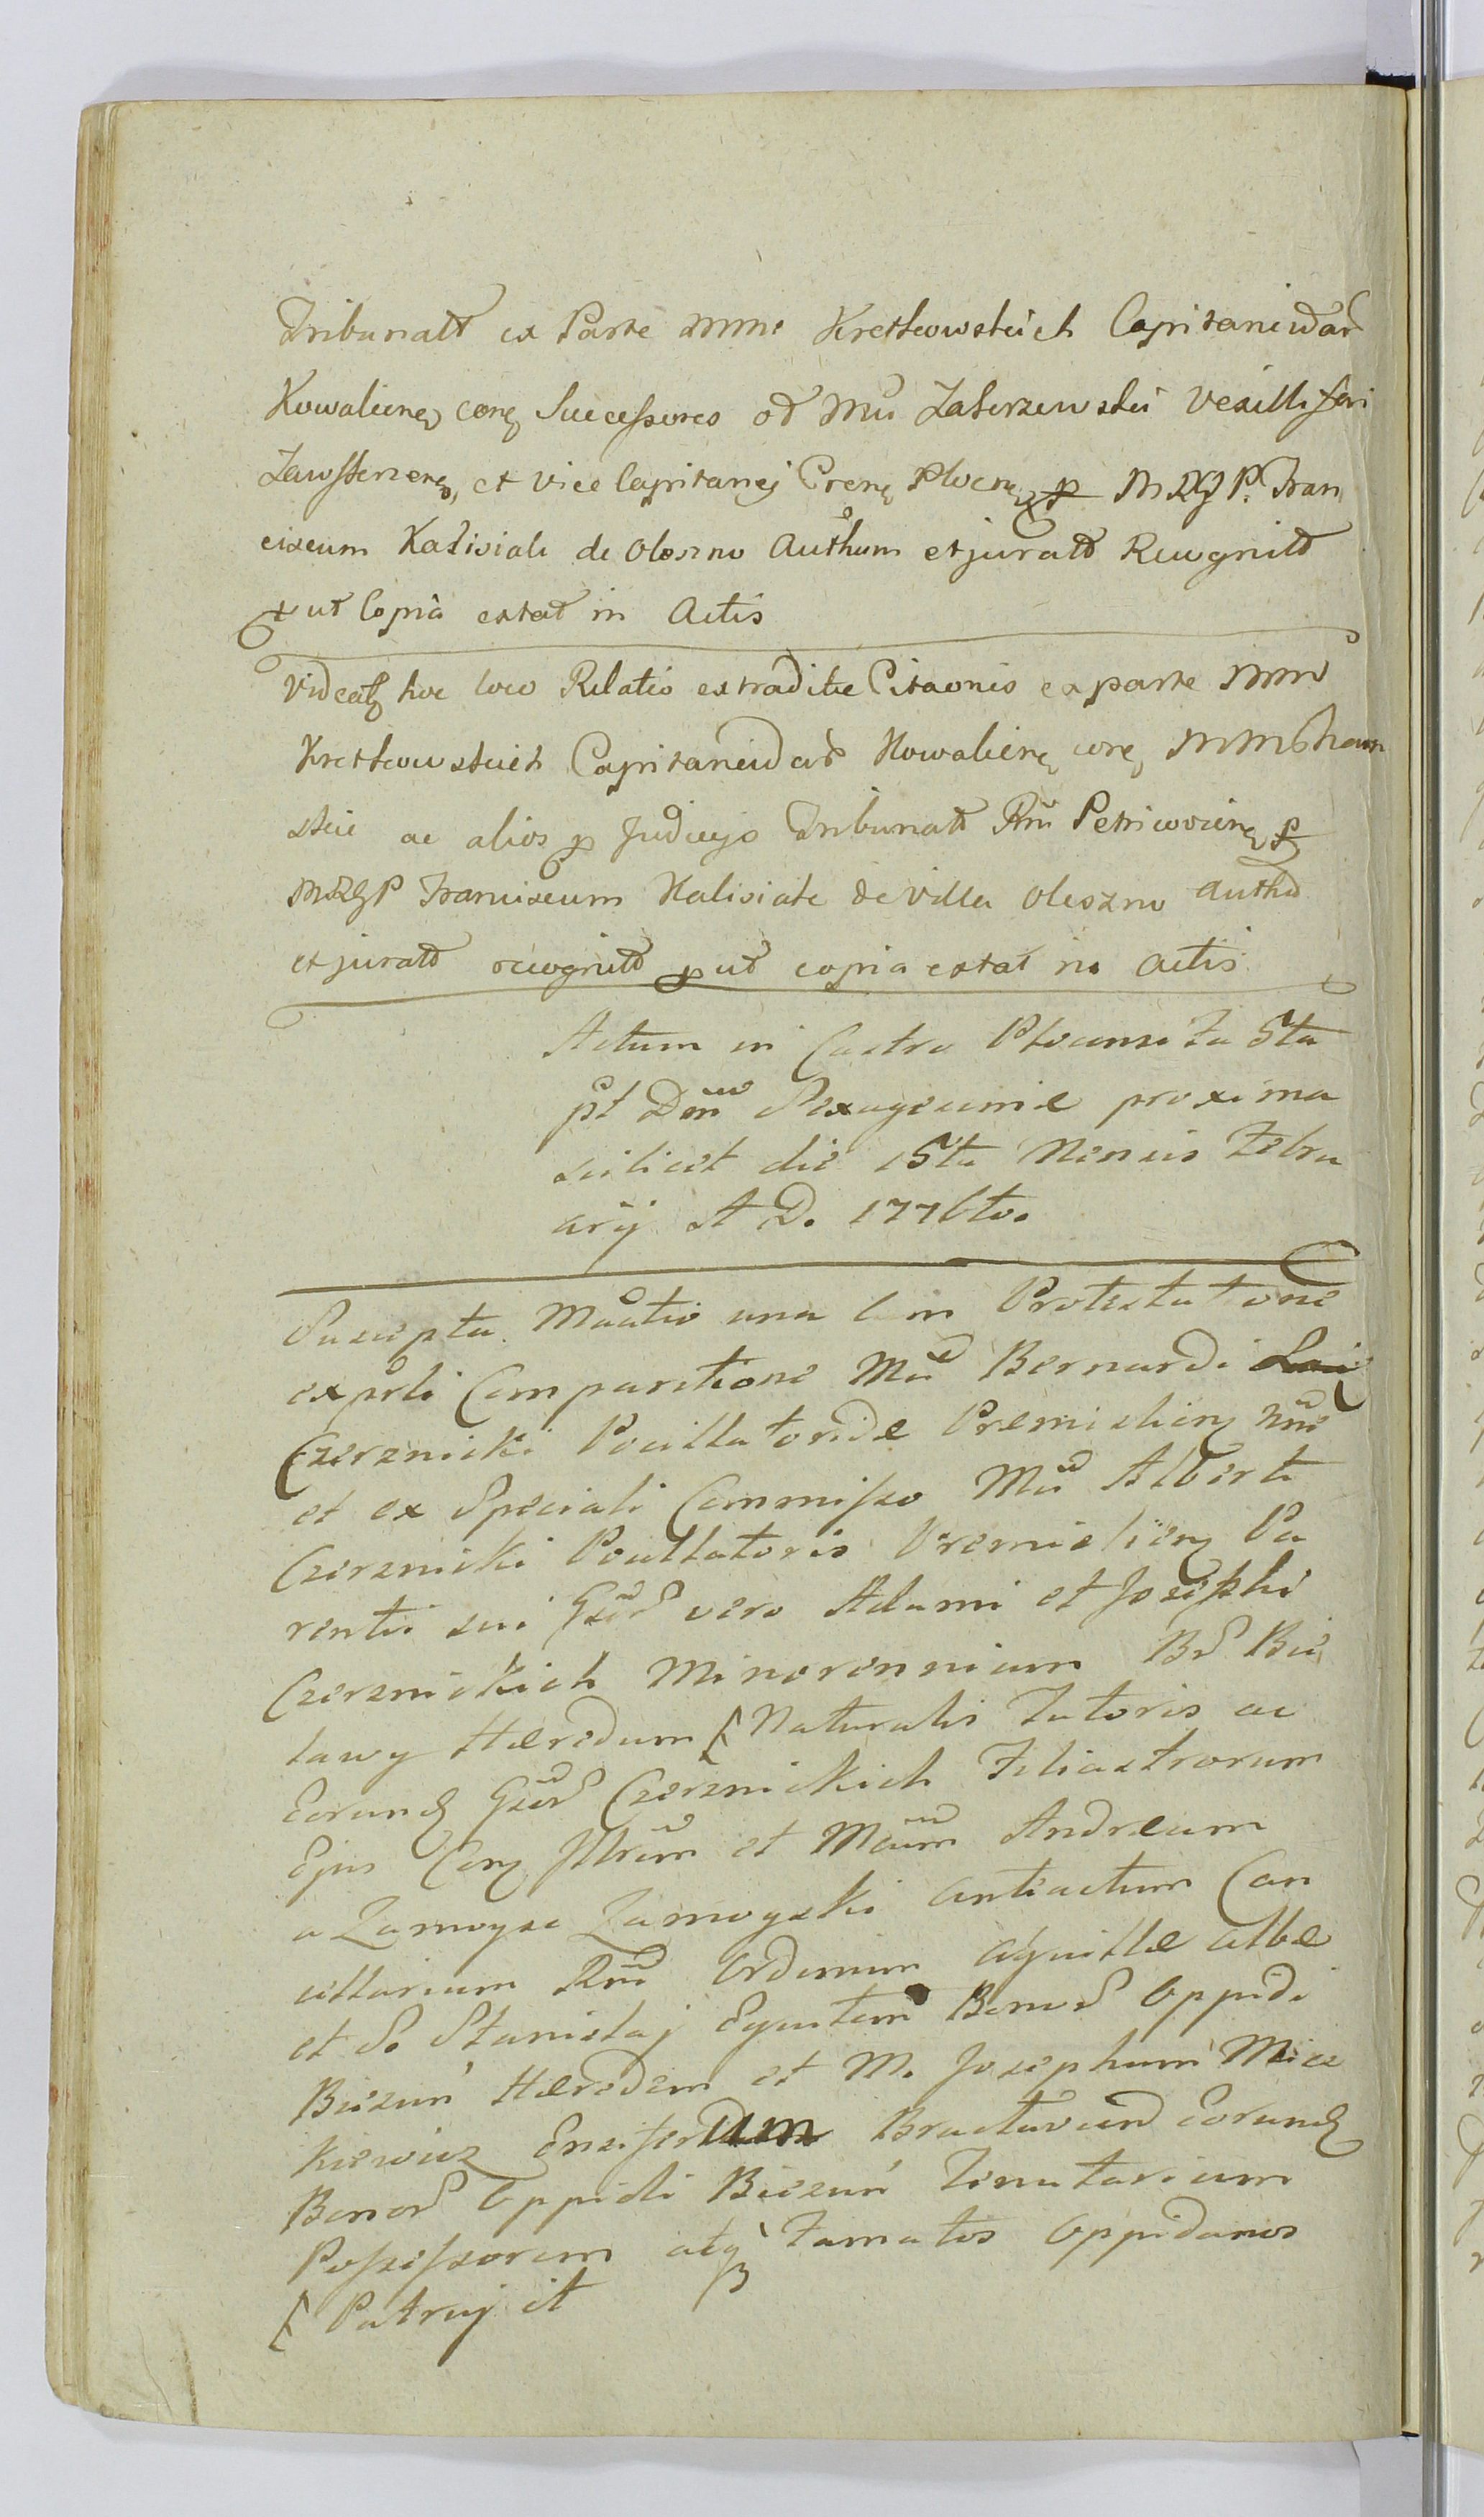 Tribunalt ex Parte MMr Kretkowskich Capitaneidar
Kowaliene cone Successores et Mu Zaborzewski Vexilliferi
Zawskrzene, et Vice Capitanej Crene Plocne p MRGP. Fran
ciscum Kalisiak de Oloszno Authum et jurats Recognits
put Copia extat in Actis
Videatq hoc loco Relatio extraditae Citaonis ex parte MMr
Kretkowskich Capitaneidar Kowaliene cone MM
skie ac alios p Judicijs Tribunalt Rni Petricoviene p
MRGP Franciscum Kalisiak de Villa Oleszno Autht
et jurats recognits put copia extat in Actis
Actum in Castro Plocensi Fa 5ta
pt Dnm Sexagesimae proxima
scilicet die 15ta Mensis Febru
arij A D. 1776to.
Suscepta. Maatio una Cum Protestatione
ex psli Comparitione Mci Bernardi
Czerznicki Pocillatoridae Premislienq Nne
et ex Speciali Commisso Mci Alberti
Czerznicki Pocillatoris Premislienq Pa
rentis sui Gsor vero Adami et Josephi
Czerznickich Minorennium Br Bie
lawy Haeredum [ Naturalis Tutoris ac
Eorundq Gsor Czerznickich Filiastrorum
Ejus Conq Jllrum et Mcum Andream
a Zamoyse Zamoyski Antiactum Can
cellarium Rni Ordinum Aquillae Albae
et S. Stanislaj Equitem Bonor Oppidi
Biezun Haeredem et M. Josephum Mice
kiewicz Ensiferidum Braclaviend Eorundq
Bonor Oppidi Biezun Tenutarium
Possessorem atq Famatos Oppidanos
[ Patruj it